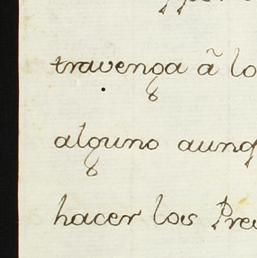 travenga â lo
alguno aunq
hacer los Pre